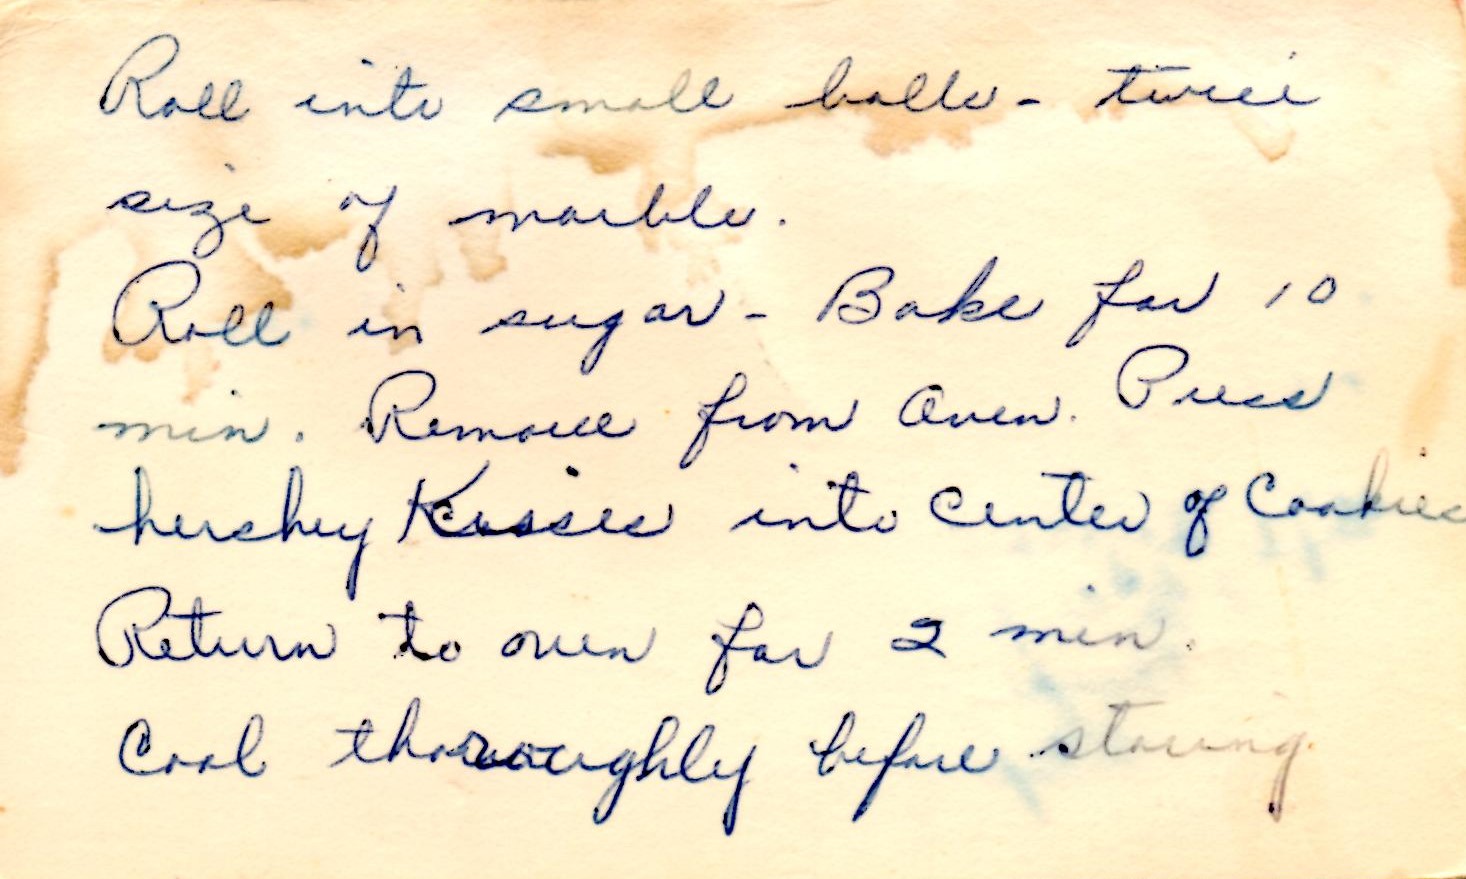 Roll into small balls - twice
size of marble.
Roll in sugar - Bake for 10
min. Remove from oven. Press
hershey Kisses into center of Cookies
Return to oven for 2 min.
Cool thoroughly before storing